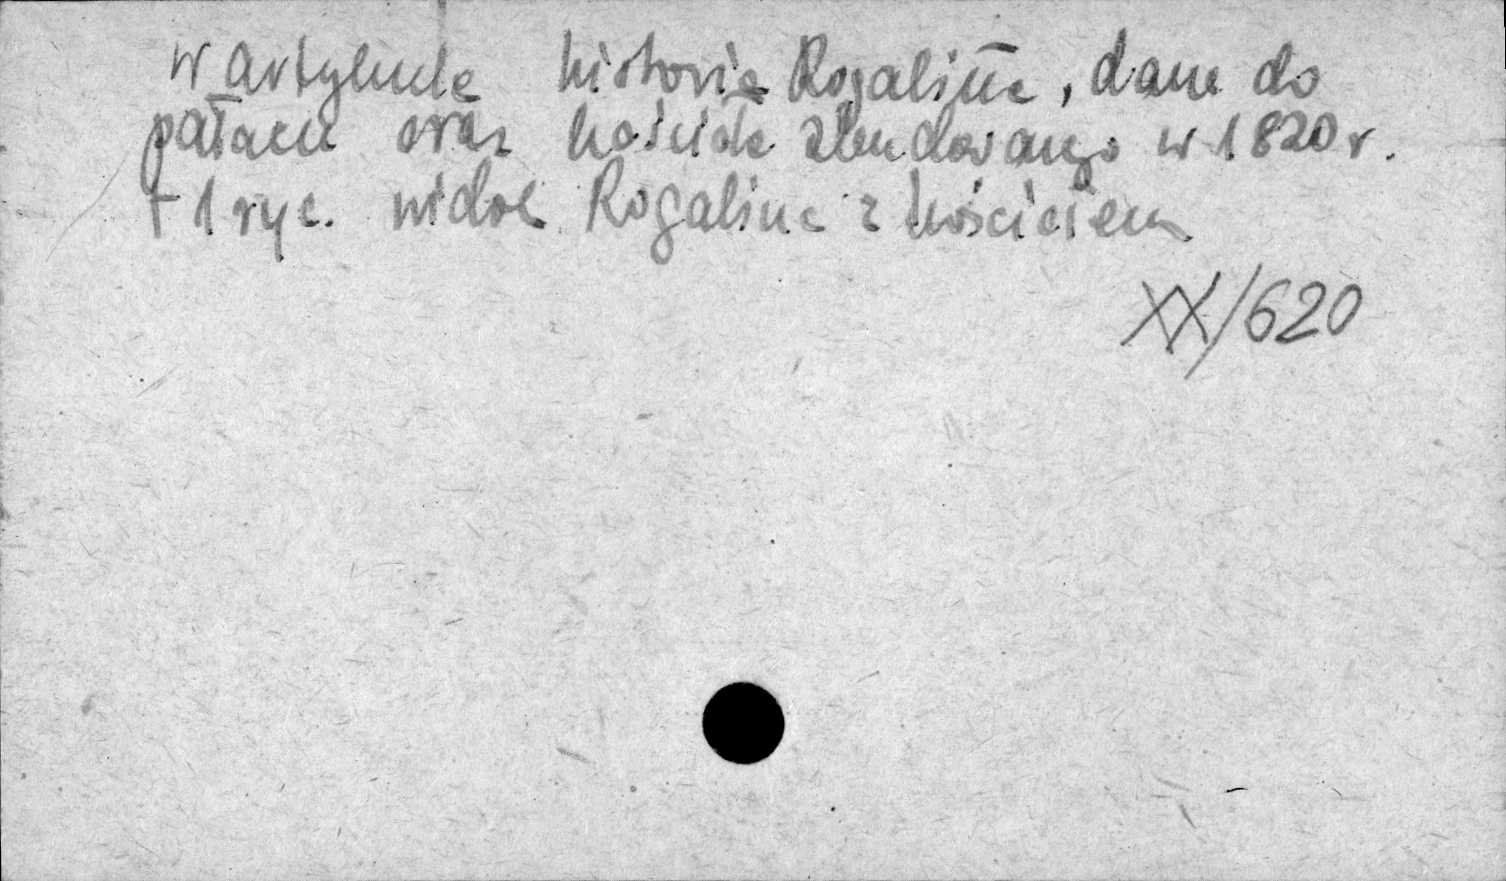 w artykule historia Rogalina, dane do
pałacu oraz kościoła zbudowanego w 1820 r.
+ 1 ryc. widok Rogalina z kościołem
XX/620